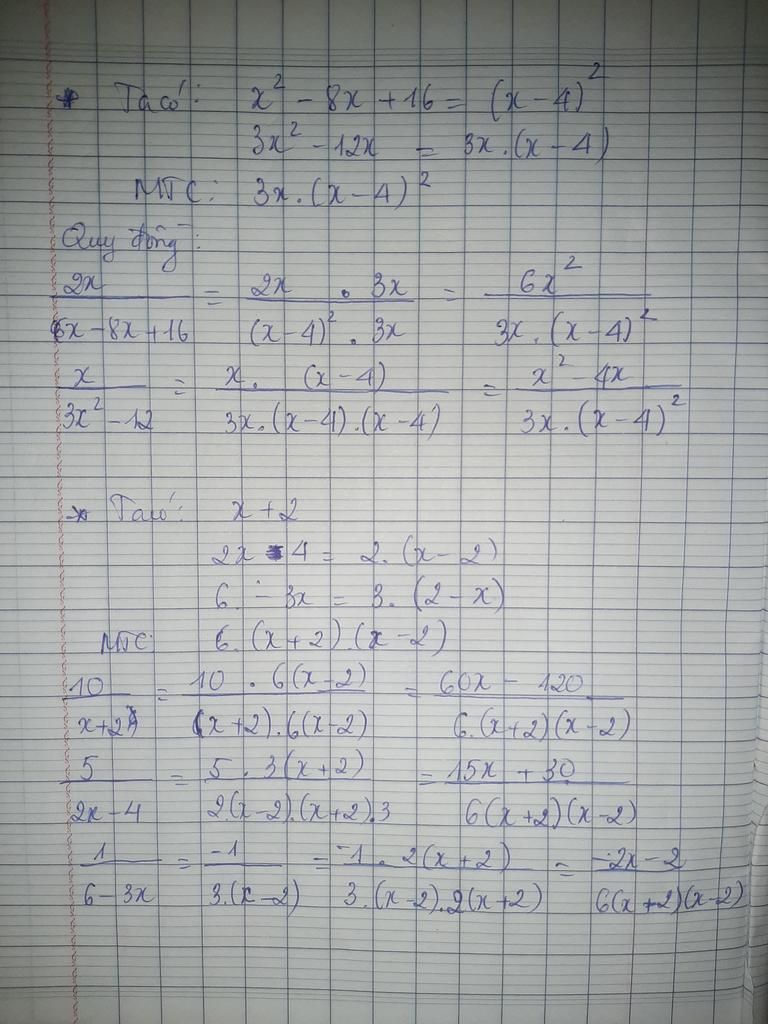 * Ta có: x² - 8x + 16 = (x - 4)²
3x² - 12x = 3x.(x - 4)
MTC: 3x.(x - 4)²
Quy đồng:
2x/6x - 8x + 16 = 2x . 3x/(x - 4)² . 3x = 6x²/3x.(x - 4)²
x/3x² - 12 = x. (x - 4)/3x.(x - 4).(x - 4) = x² - 4x/3x.(x - 4)²
* Ta có: x + 2
2x - 4 = 2.(x - 2)
6. - 3x = 3.(2 - x)
MTC: 6.(x + 2).(x - 2)
10/x + 2 = 10 . 6(x - 2)/(x + 2).6(x - 2) = 60x - 120/6.(x + 2)(x - 2)
5/2x - 4 = 5 . 3(x + 2)/2(x - 2).(x + 2).3 = 15x + 30/6(x + 2)(x - 2)
1/6 - 3x = -1/3.(x - 2) = -1 . 2(x + 2)/3.(x - 2).2(x + 2) = -2x - 2/6(x + 2)(x - 2)